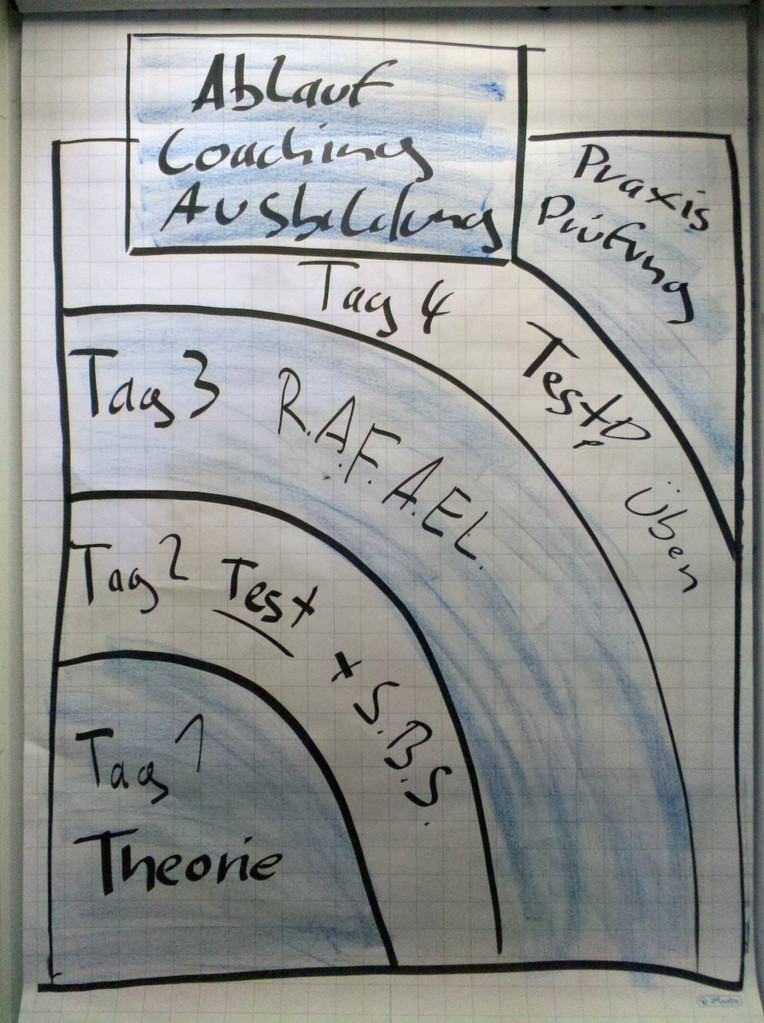 Ablauf
Coaching
Ausbildung
Praxis
Prüfung
Tag 4
Test
Üben
Tag 3
R.A.F.A.E.L.
Tag 2
Test
+ S.B.S.
Tag 1
Theorie